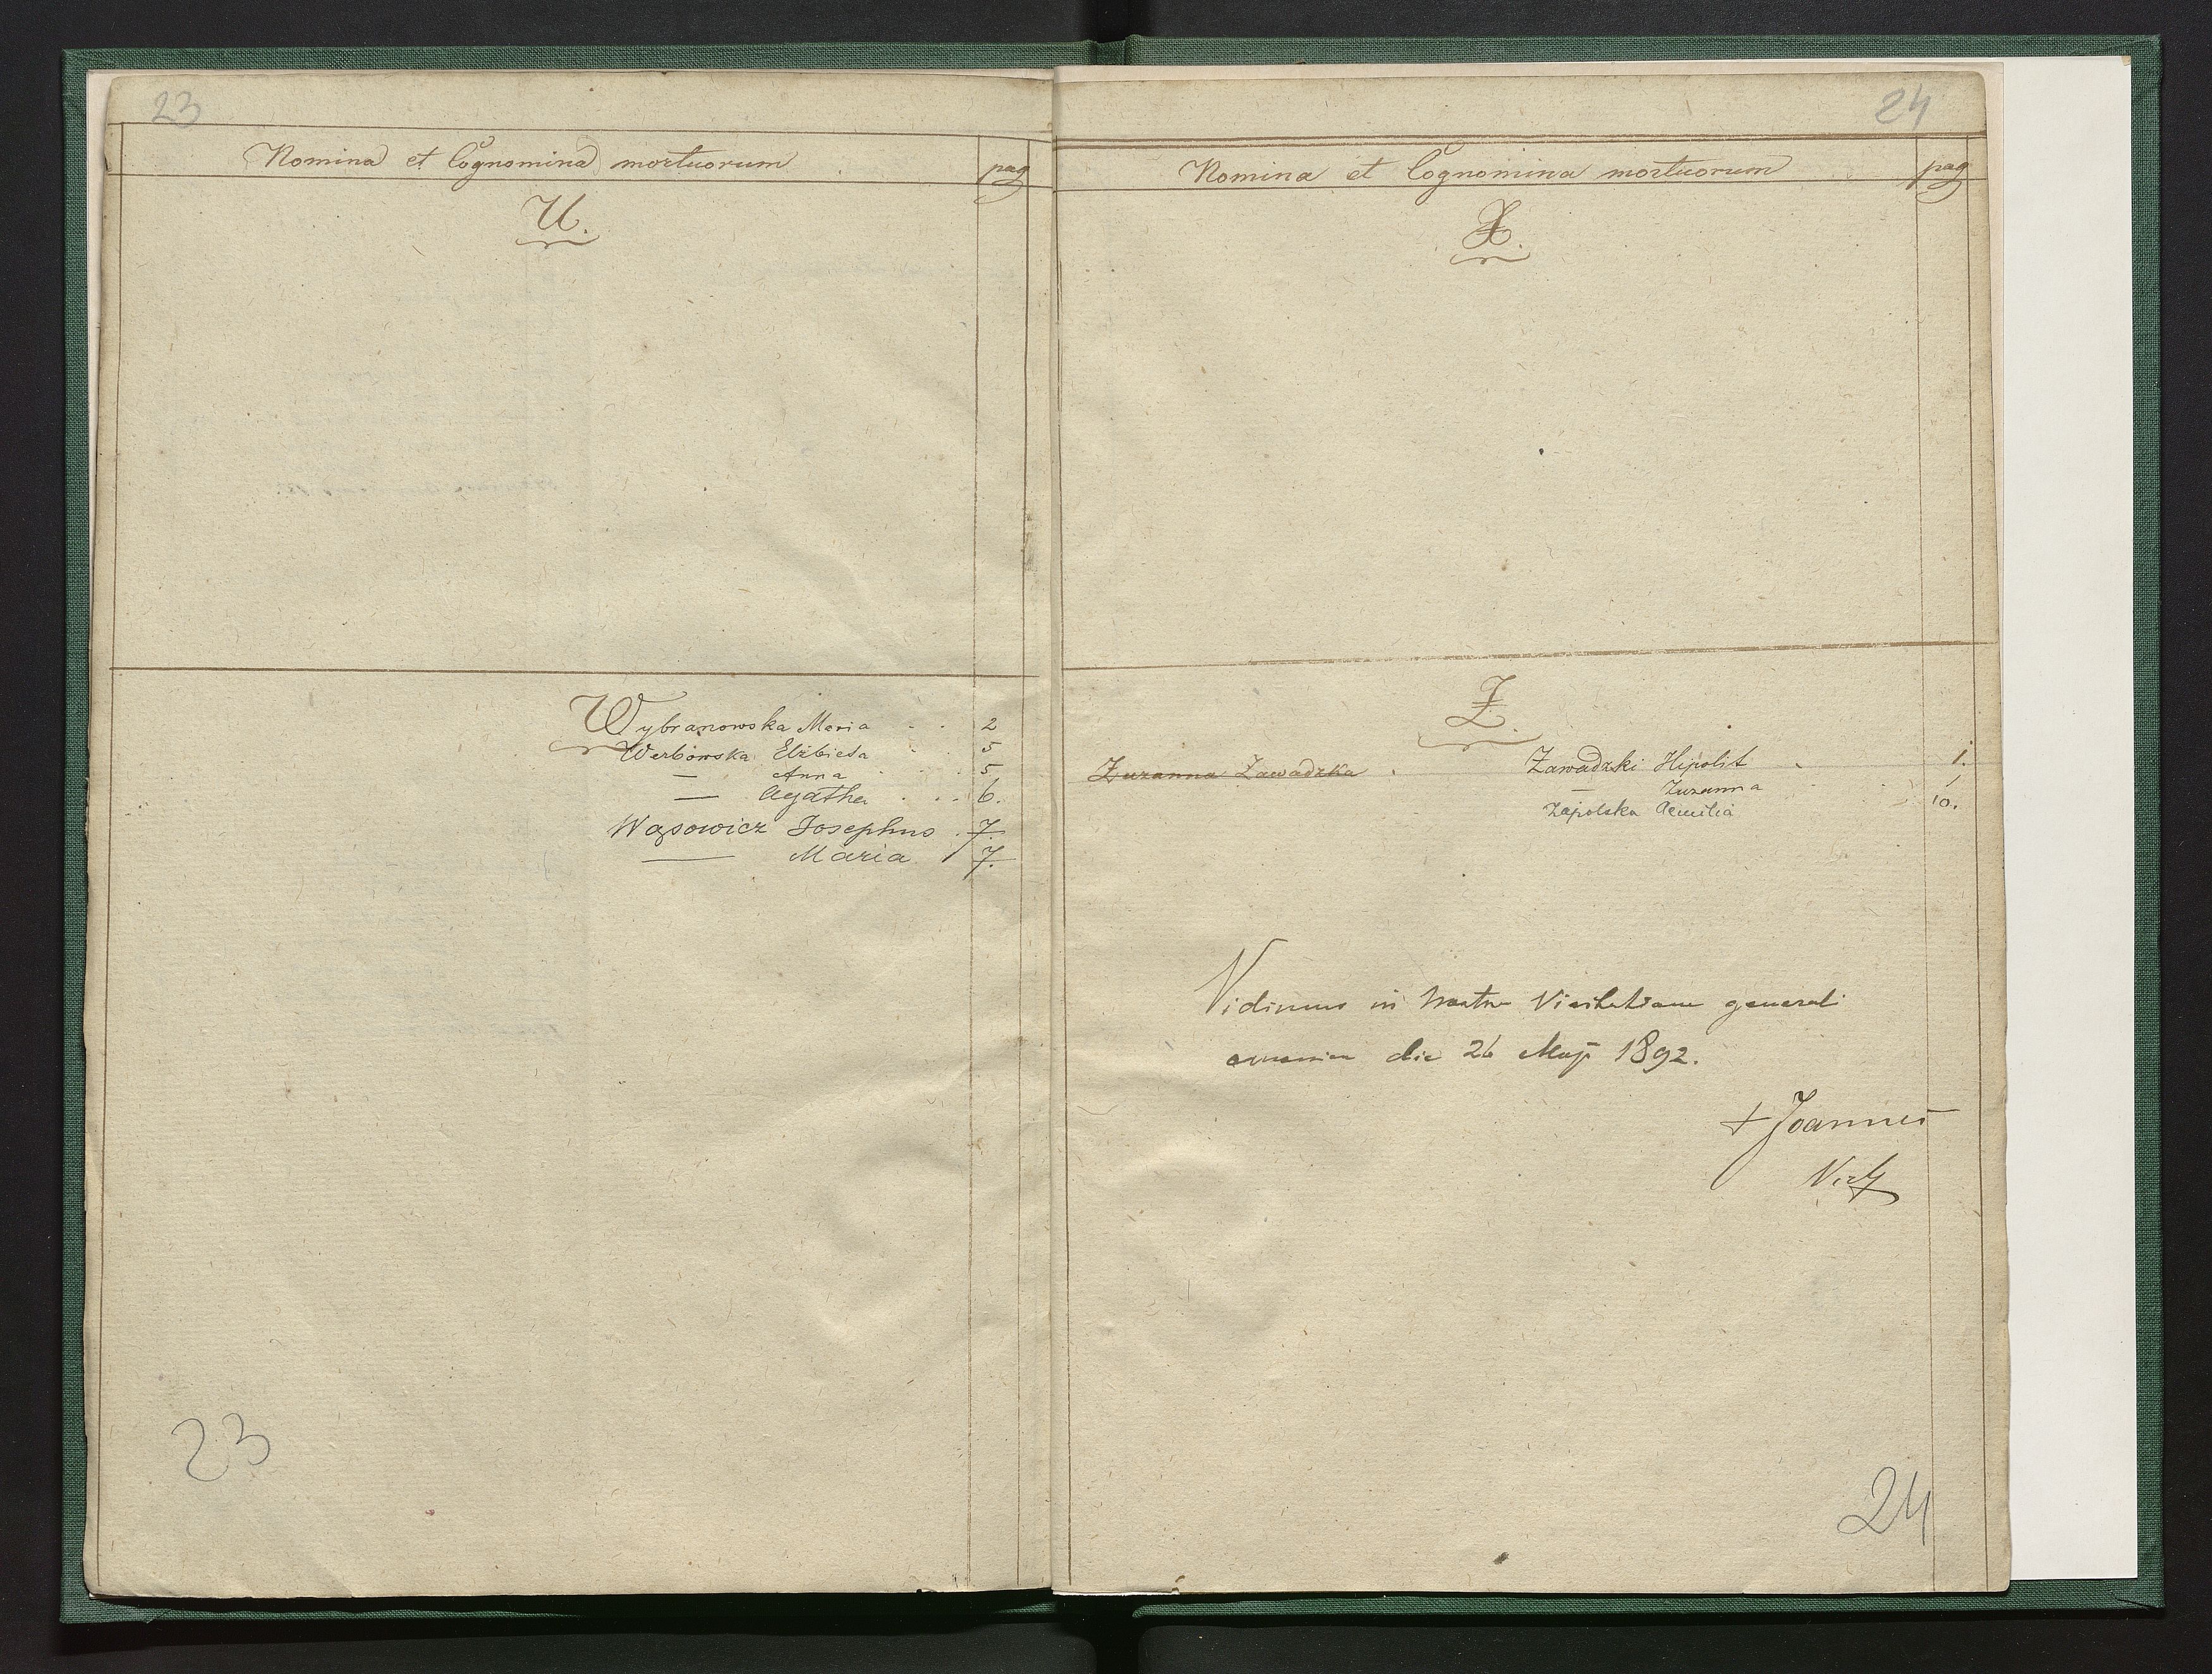 23
Nomina et Cognomina mortuorum pag
U.
W
Wybranowska Maria . . 2
Werbowska Elżbieta . . 5
— Anna . . 5
— Agatha . . . 6.
Wąsowicz Josephus . 7.
— Maria 7.
23
24
Nomina et Cognomina mortuorum pag
X.
Z.
Zuzanna Zawadzka .
Zawadzki Hipolit . 1.
— Zuzanna 1
Zapolska Aemilia 10.
Vidimus in nostra Visitatione generali
die 26 Maji 1892.
+ Joannes
24